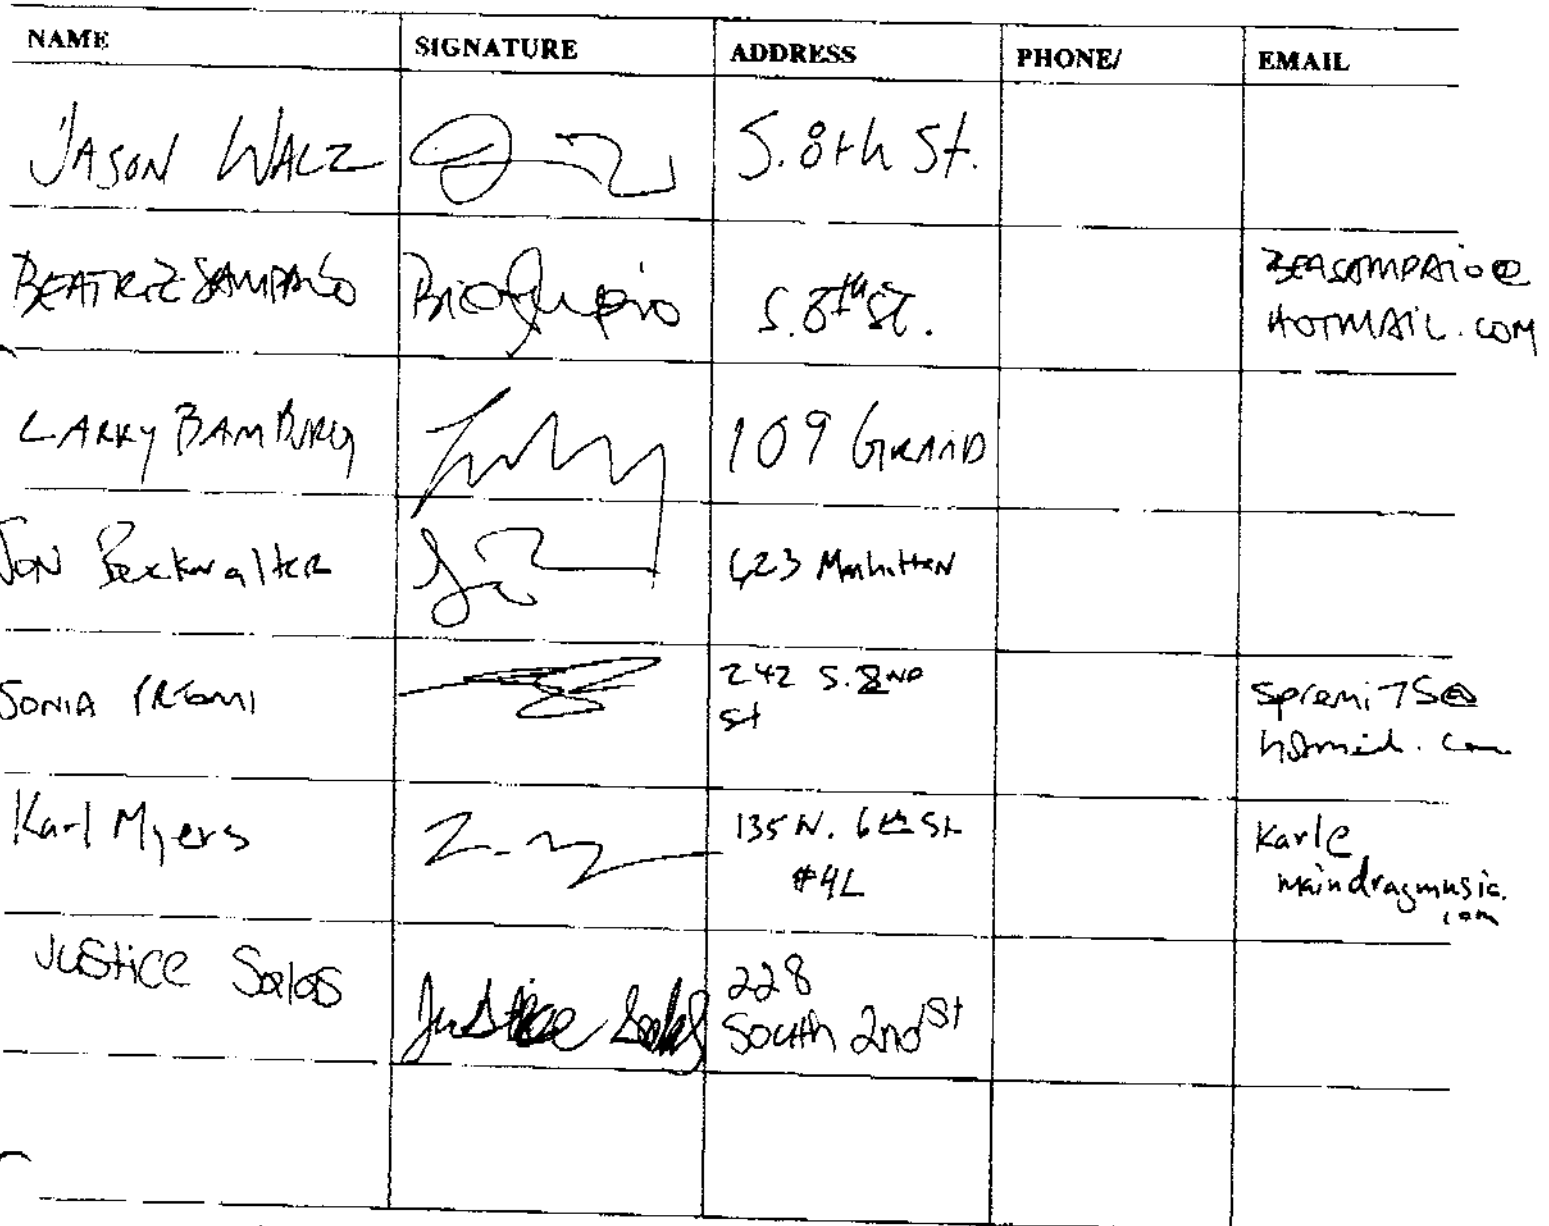 NAME SIGNATURE ADDRESS PHONE/ EMAIL
JASON WALZ S. 8th St.
BEATRIZ SAMPAIO S. 8th St. BEASAMPAIO@
HOTMAIL.COM
LARRY BAMBURG 109 GRAND
JON 623 Manhattan
SONIA PREMI 242 S. 2ND spremi75@
St hotmail.com
Karl Myers 135 N. 6th St Karl@
#4L maindragmusic.
com
Justice Salas Justice Salas 228
South 2nd St